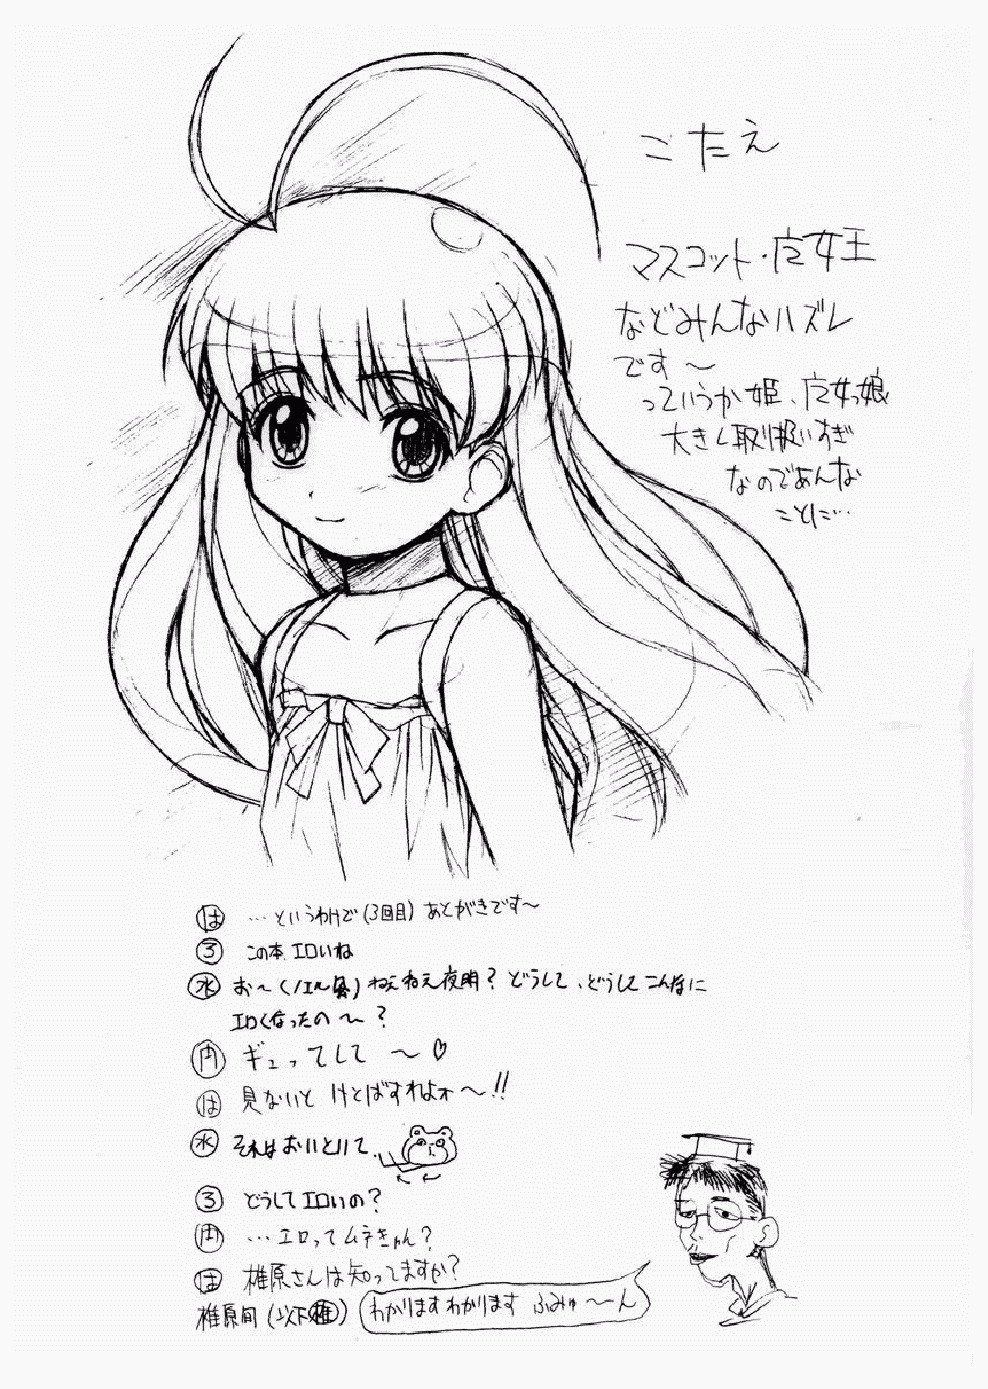 こたえ
マスコット・魔女王
などみんなハズレ
です〜
っていうか姫、魔女っ娘
大きく取り扱いすぎ
なのであんな
ことに…
は …というわけで(3回目)あとがきです〜
ろ この本、エロいね
水 お〜(ノエル風)ねえねえ夜明?どうして、どうしてこんなに
エロくなったの〜?
円 ギュってして〜♡
は 見ないと けとばすわよォ〜!!
水 それはおいといて、
ろ どうしてエロいの?
円 …エロってムテきゅん?
は 椎原さんは知ってますか?
椎原旬(以下椎) わかりますわかります ふみゅ〜〜ん